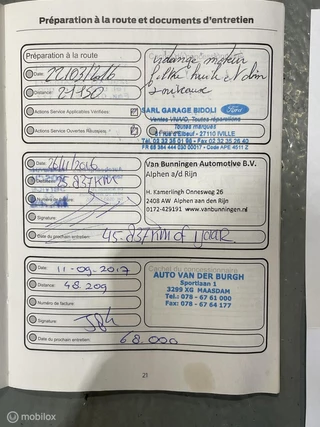 Préparation à la route et documents d'entretien
Préparation à la route
Date: 22/03/2016
Distance: 27150
vidange moteur
filtre huile
Actions Service Applicables Vérifiées:
Actions Service Ouvertes Réussies:
SARL GARAGE BIDOLI Ford
Ventes VN/VO, Toutes réparations
Toutes marques
27110 IVILLE
Tél. 02 32 35 01 86 - Fax 02 32 35 26 40
Code APE 4511 Z
Date:
25.837 KM
Signature:
Date du prochain entretien: 45.837 KM of 1 JAAR
Van Bunningen Automotive B.V.
Alphen a/d Rijn
H. Kamerlingh Onnesweg 26
2408 AW Alphen aan den Rijn
0172-429191 www.vanbunningen.nl
Date: 11-09-2017
Distance: 48.209
Numéro de facture
Signature:
Date du prochain entretien: 68.000
AUTO VAN DER BURGH
Sportlaan 1
3299 XG MAASDAM
Tel.: 078 - 67 61 000
Fax: 078 - 67 64 177
21
mobilox